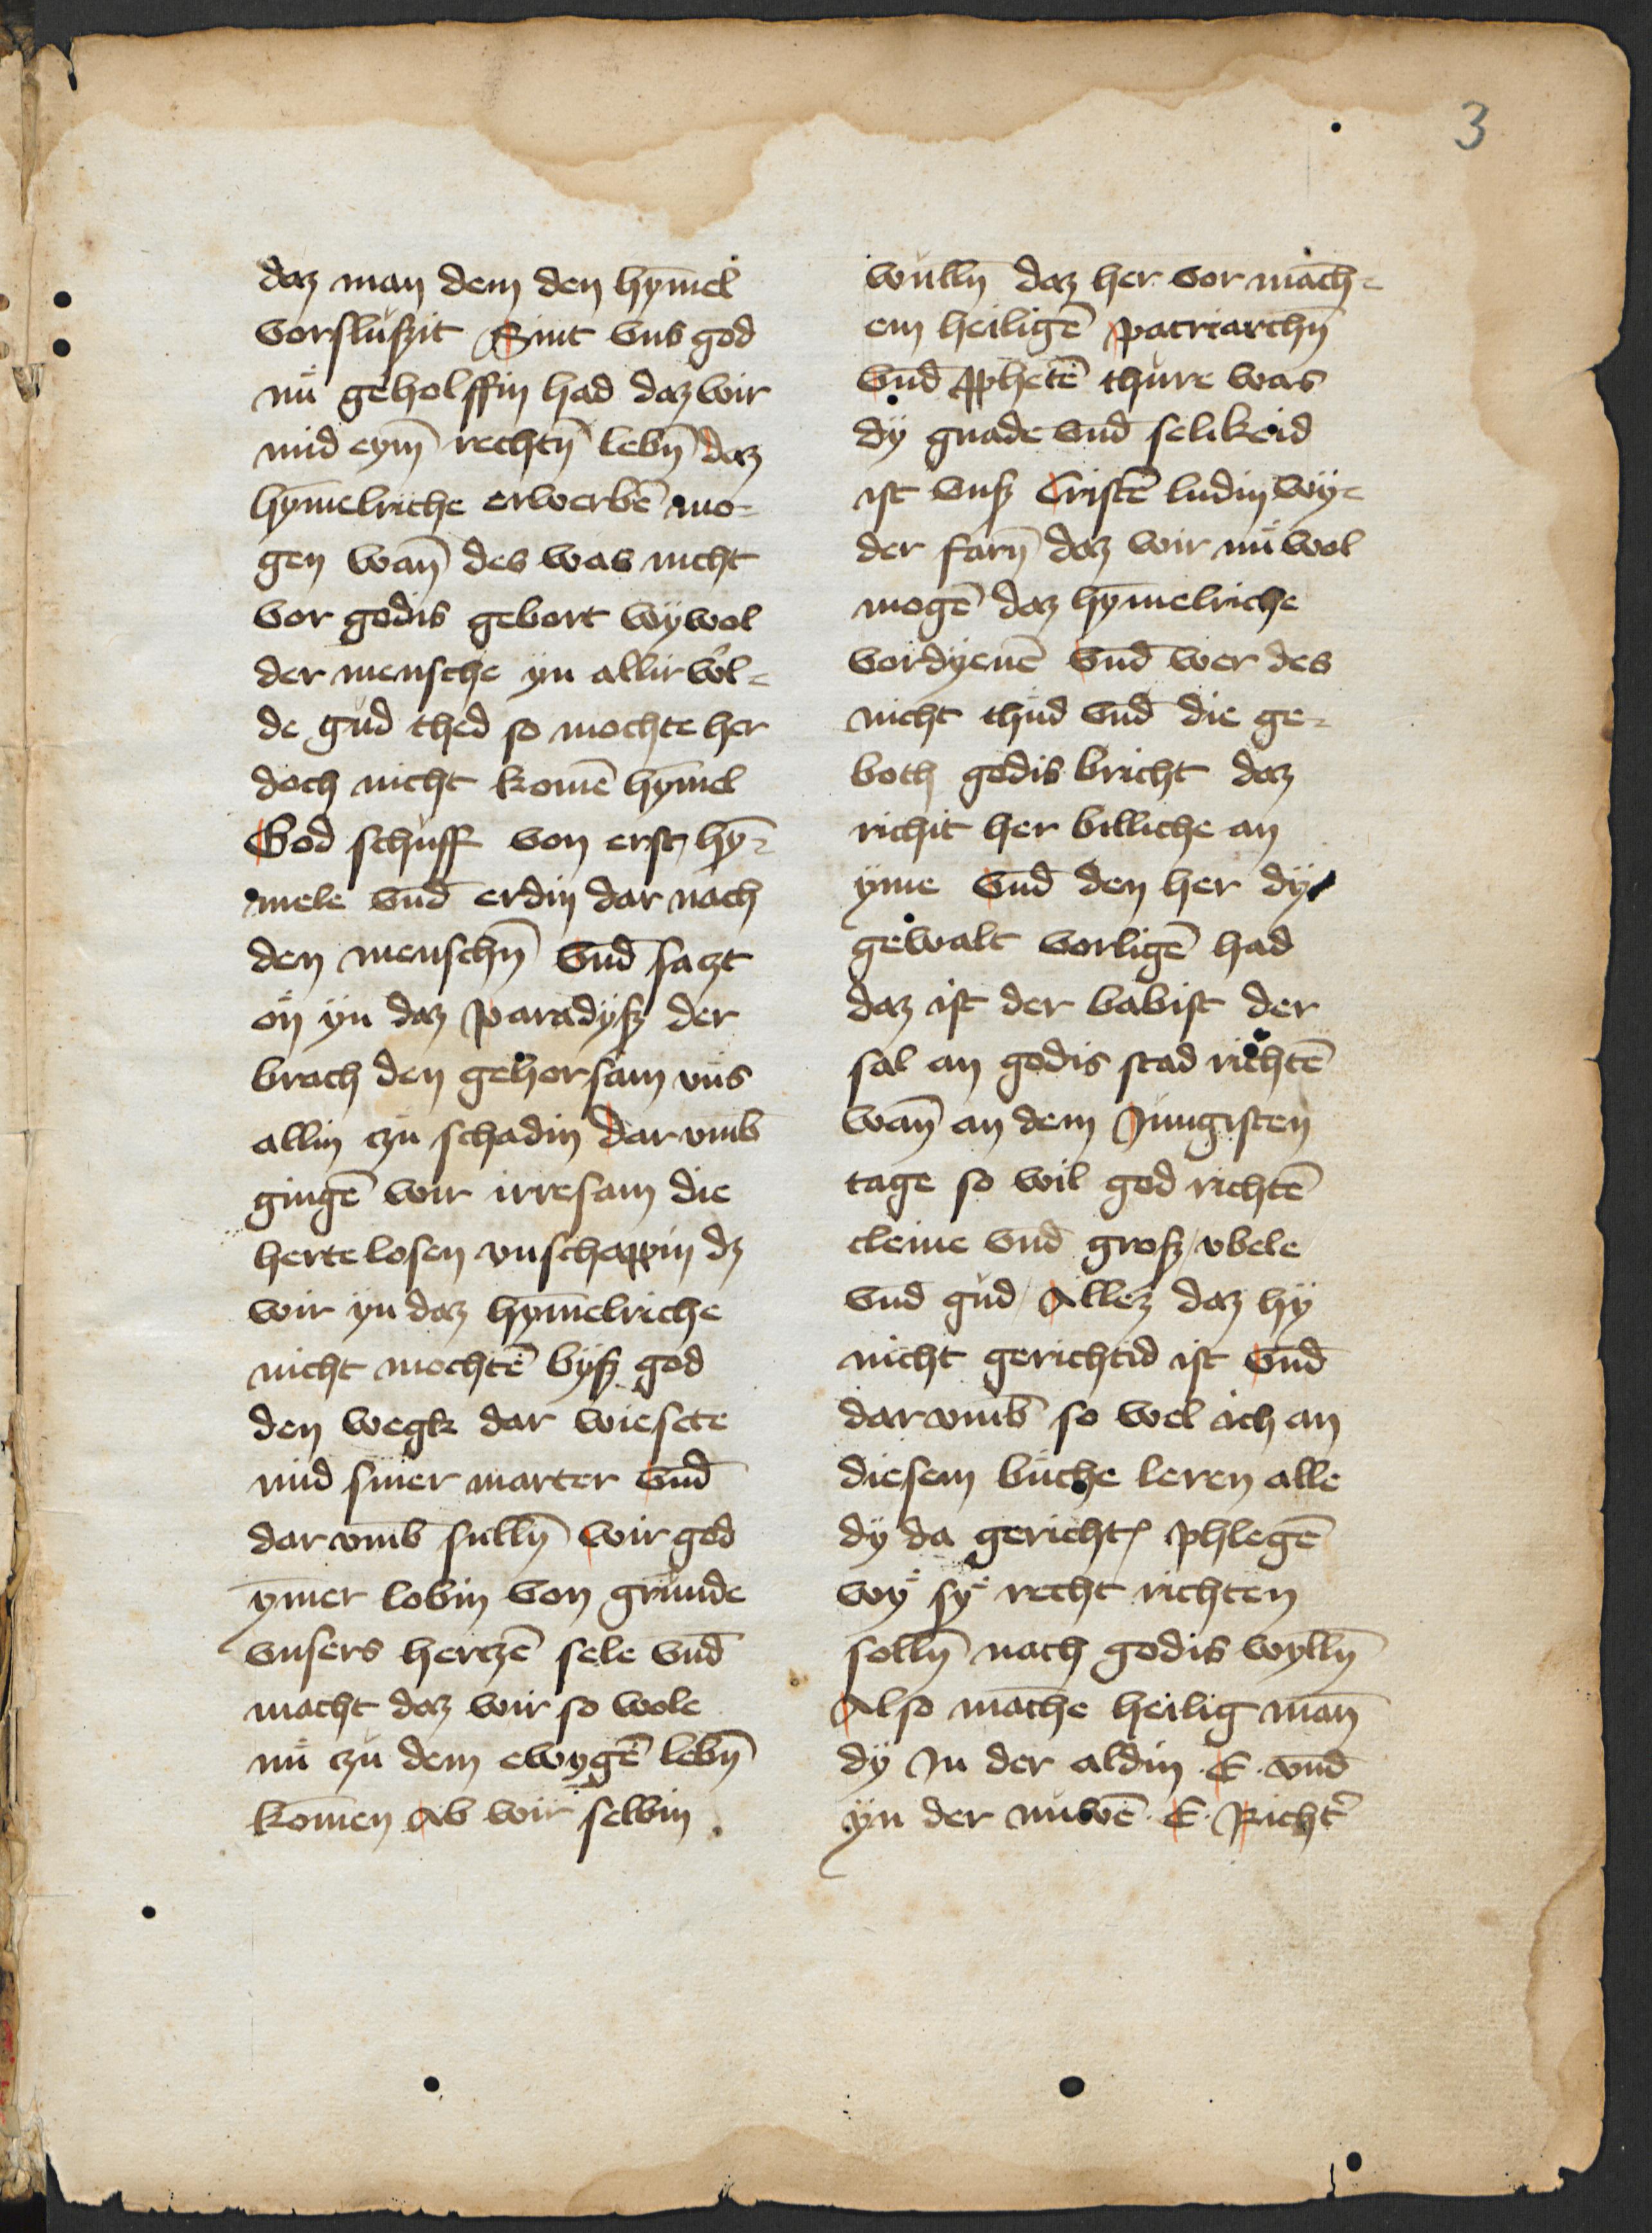 3
daz man dem den hym̄el
vorsluszit Sint vns god
nu geholffin had daz wir
mid eym̄ rechtn̄ lebn̄ daz
hym̄elriche erwerbē mo⸗
gen wan̄ des was nicht
vor godis gebort wÿ wol
der mensche ÿn allir wˀl⸗
de gud thed so mochte her
doch nicht komē hym̄el
God schuff von erst hy̅⸗
mele vnd̄ erdin dar nach
den menschn̄ vnd̄ saczt
on ÿn daz paradÿsz der
brach den gehorsam vns
allin czu schadin dar vmb
gingē wir irresam die
herte losen vnschappin dz
wir ÿn daz hym̄elriche
nicht mochtē bÿsz god
den wegk dar wiesete
mid siner marter vnd̄
dar vmb sulln̄ wir god
ym̄er lobin von grunde
vnsers herczē sele vnd̄
macht daz wir so wole
nu czu dem ewygē lebn̄
kom̄en Ab wir selbin
wulln̄ daz her vor man̄ch⸗
em heiligē patriarchn̄
vnd̄ ꝓphetē thure was
dÿ gnade vnd̄ selikeid
ist vnsz Cristē ludin wÿ⸗
der farn̄ daz wir nu wol
mogē daz hym̄elriche
vordÿenē vnd̄ wer des
nicht thud vnd̄ die ge⸗
both godis bricht daz
richit her billiche an
ÿme vnd̄ den her dÿ
gewalt vorligē had
daz ist der babist der
sal an godis stad richtē
wan̄ an dem Jungisten
tage so wil god richtē
cleine vnd̄ grosz / vbele
vnd gud / Allez daz hÿ
nicht gerichtid ist vnd̄
dar vmb so wel ich an
diesem buche leren alle
dÿ da gericht̕ phlegē
wy sy recht richten
solln̄ nach godis wylln̄
Also man̄che heilig man̄
dÿ Jn der aldin .E. vnd̄
ÿn der nuwē .E. Richtˀ